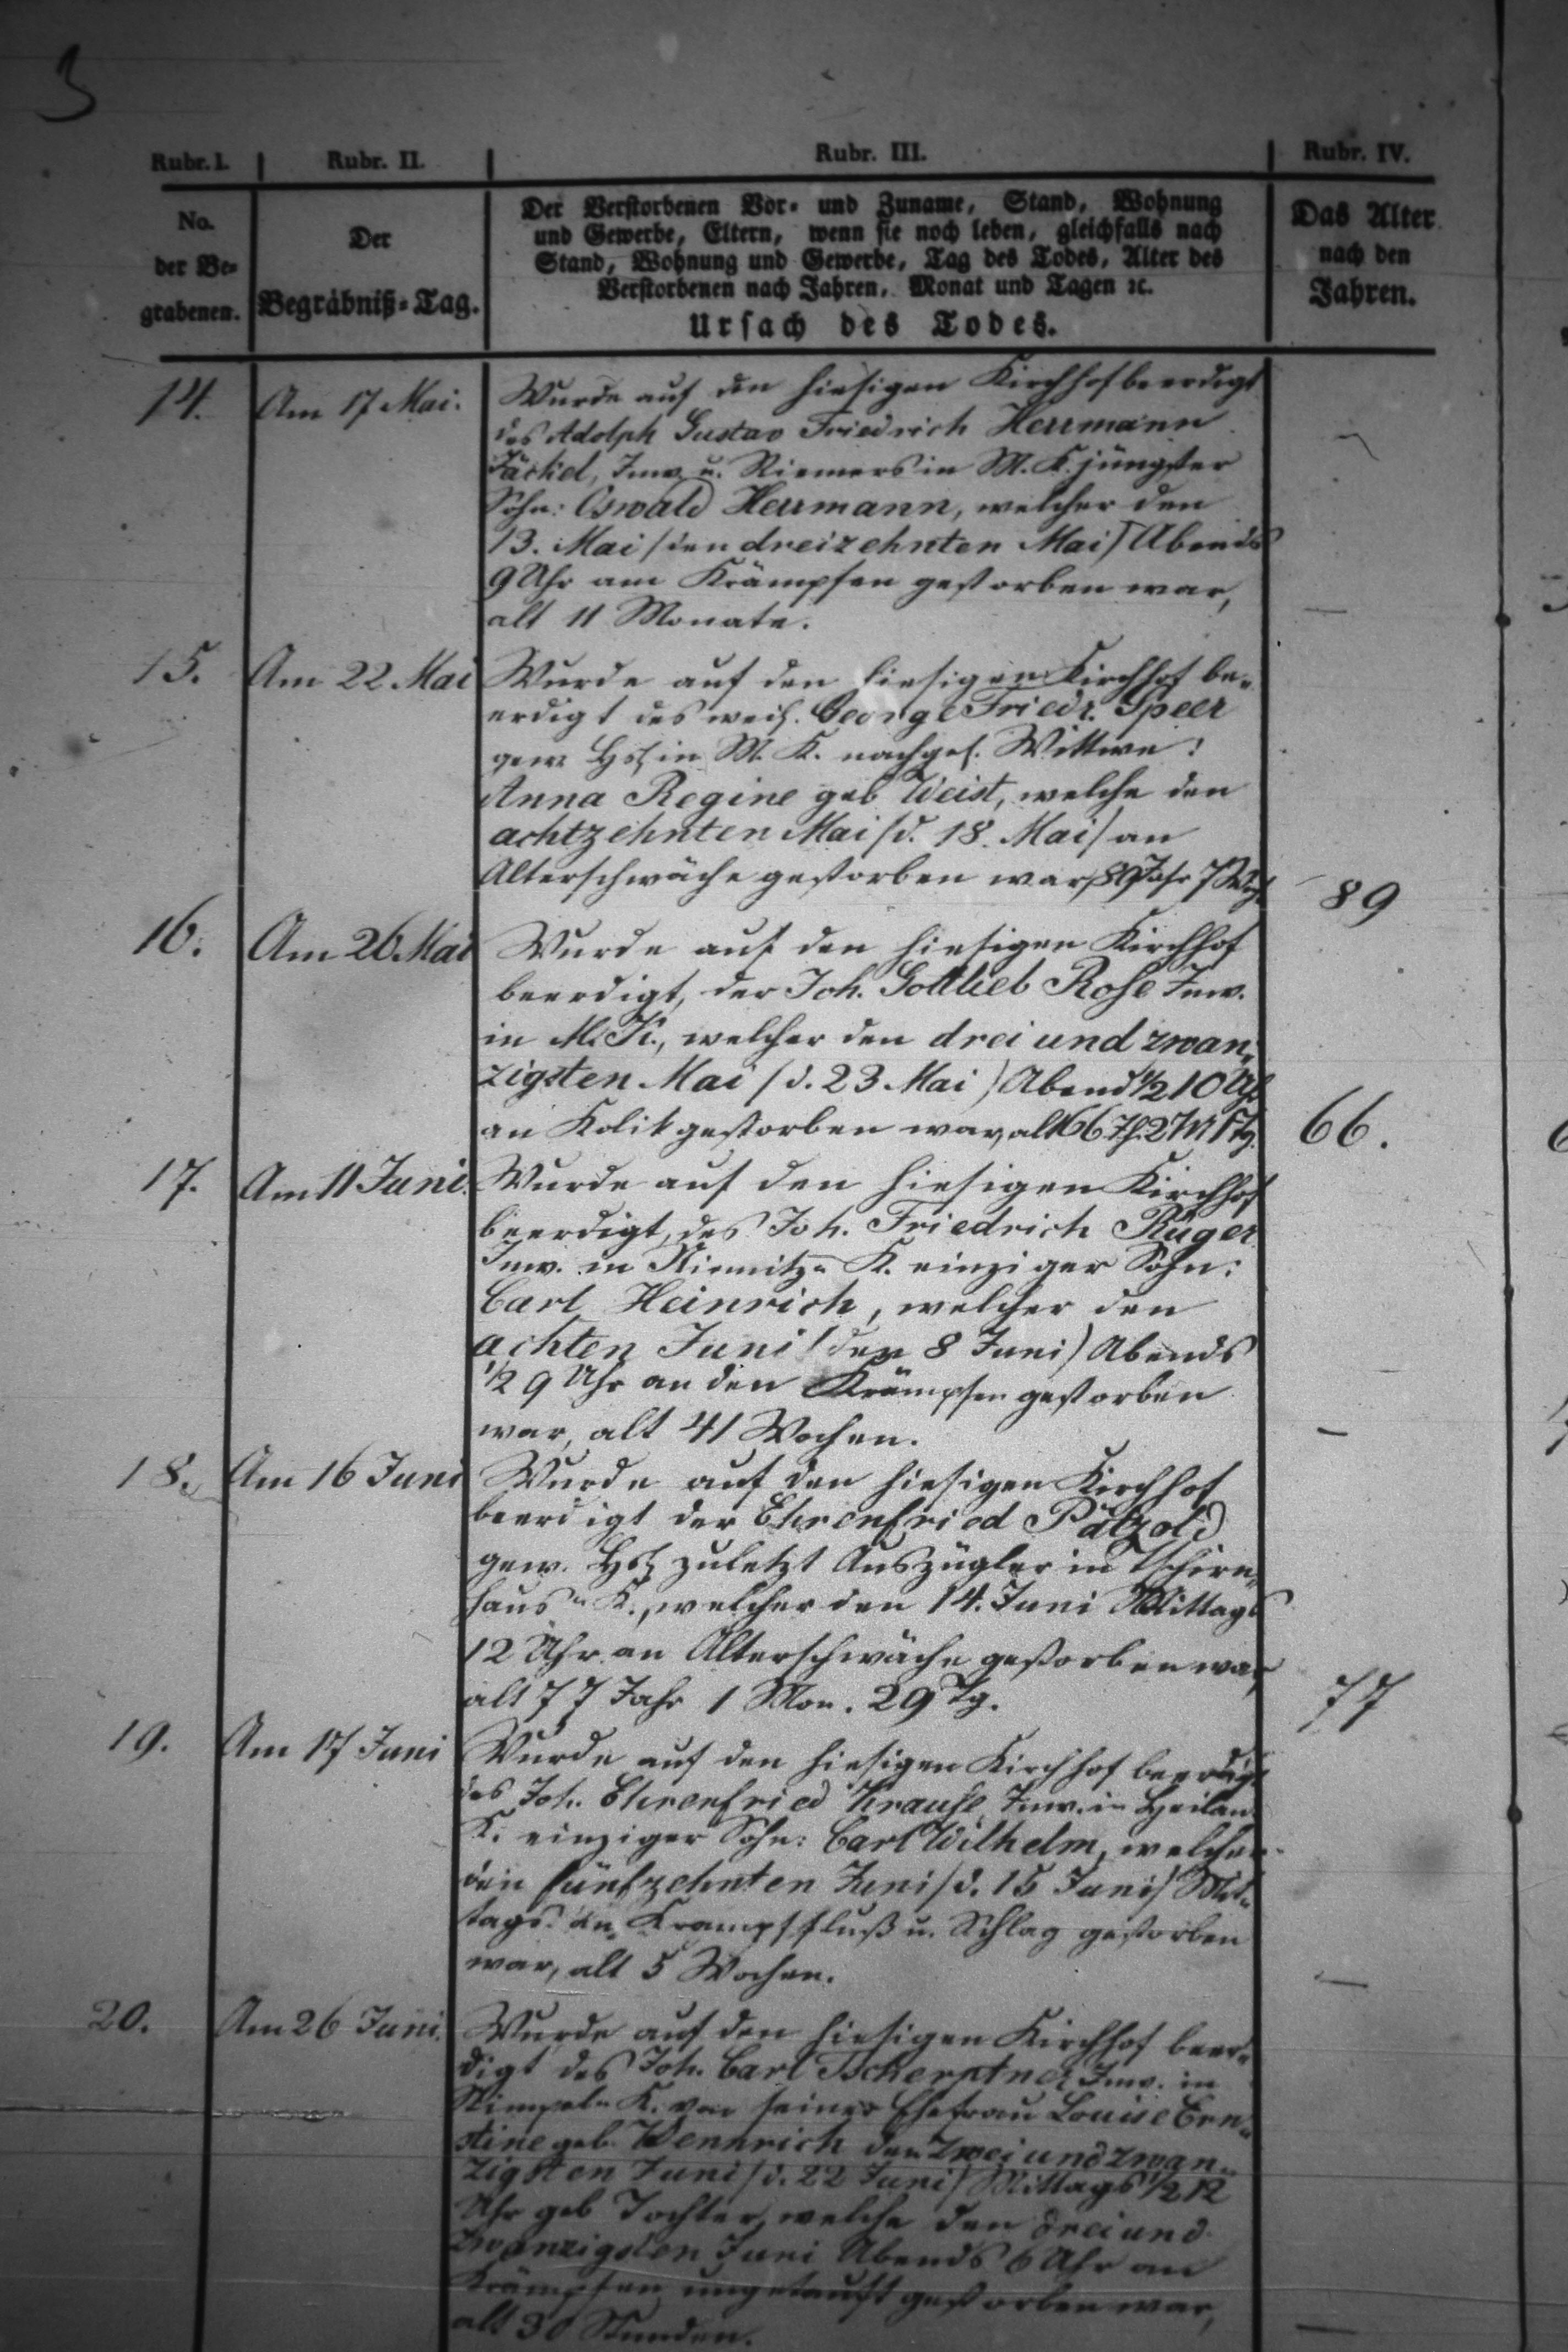 3
Rubr. I. Rubr. II. Rubr. III. Rubr. IV.
No.
der Be=
grabenen.
Der
Begräbniß=Tag.
Der Verstorbenen Vor= und Zuname, Stand, Wohnung
und Gewerbe, Eltern, wenn sie noch leben, gleichfalls nach
Stand, Wohnung und Gewerbe, Tag des Todes, Alter des
Verstorbenen nach Jahren, Monat und Tagen ꝛc.
Ursach des Todes.
Das Alter
nach den
Jahren.
14. Am 17 Mai. Wurde auf den hiesigen Kirchhof beerdigt
des Adolph Gustav Friedrich Herrmann
Jäckel, Inw. u. Riemers in M. K. jüngster
Sohn: Oswald Herrmann, welcher den
13. Mai /den dreizehnten Mai/ Abends
9 Uhr am Krämpfen gestorben war,
alt 11 Monate. —
15. Am 22 Mai Wurde auf den hiesigen Kirchhof be=
erdigt des weil. George Friedr. Speer
gew. Hsl. in M. K. nachgel. Wittwe:
Anna Regine geb Weist, welche den
achtzehnten Mai /d. 18. Mai/ an
Alterschwäche gestorben war, 89 Jahr 7 Woch. 89
16. Am 26 Mai Wurde auf den hiesigen Kirchhof
beerdigt, der Joh. Gottlieb Rose Inw.
in M. K., welcher den drei und zwan=
zigsten Mai /d. 23 Mai/ Abend 1/2 10 Uhr
an Kolik gestorben war, alt 66 Jh. 2 M Tg. 66.
17. Am 11 Juni. Wurde auf den hiesigen Kirchhof
beerdigt, des Joh. Friedrich Rüger
Inw. in Niemitz= K. einziger Sohn:
Carl Heinrich, welcher den
achten Juni /den 8 Juni/ Abends
1/2 9 Uhr an den Krämpfen gestorben
war, alt 41 Wochen. —
18. Am 16 Juni Wurde auf den hiesigen Kirchhof
beerdigt der Ehrenfried Pätzold
gew. Hsl. zuletzt Auszügler in Tschirn=
haus= K., welcher den 14. Juni Mittags
12 Uhr an Alterschwäche gestorben war,
alt 77 Jahr 1 Mon. 29 Tg. 77
19. Am 17 Juni Wurde auf den hiesigen Kirchhof beerdigt
des Joh. Ehrenfried Krause, Inw. in Heilan=
K. einziger Sohn: Carl Wilhelm, welcher
den fünfzehnten Juni /d. 15 Juni/ Mit=
tags an Krampffluß u. Schlag gestorben
war, alt 5 Wochen. —
20. Am 26 Juni. Wurde auf den hiesigen Kirchhof beer=
digt des Joh. Carl Inw. in
K. von seiner Ehefrau Louise Ern=
stine geb. Wennrich den zwei und zwan=
zigsten Juni /d. 22 Juni/ Mittags 1/2 12
Uhr geb Tochter, welche den drei und
zwanzigsten Juni Abends 6 Uhr an
Krämpfen ungetauft gestorben war,
alt 30 Stunden. —